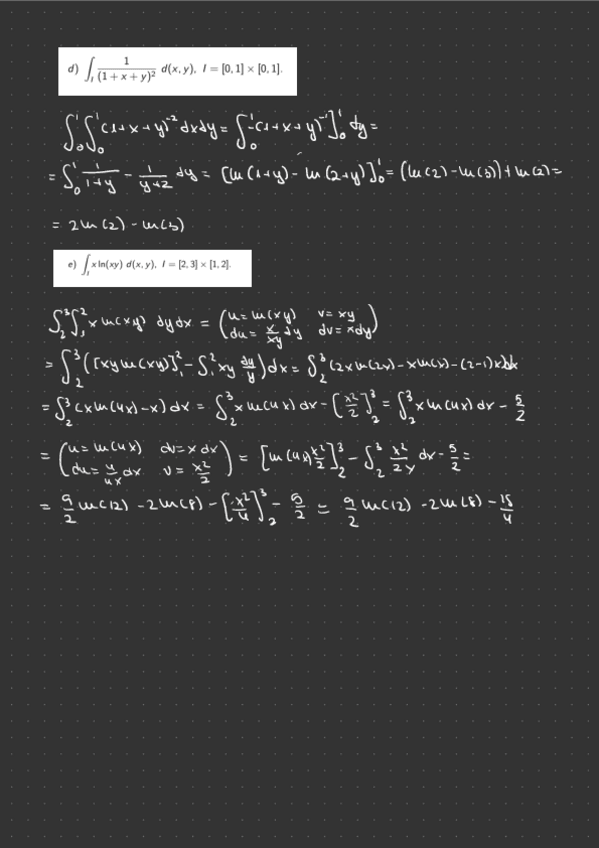 d) ∫_I 1/(1 + x + y)² d(x, y), I = [0, 1] × [0, 1].
∫₀¹∫₀¹ (1+x+y)⁻² dxdy = ∫₀¹ -(1+x+y)⁻¹]₀¹ dy =
= ∫₀¹ 1/(1+y) - 1/(y+2) dy = [ln(1+y) - ln(2+y)]₀¹ = (ln(2) - ln(3)) + ln(2) =
= 2ln(2) - ln(3)
e) ∫_I x ln(xy) d(x, y), I = [2, 3] × [1, 2].
∫₂³∫₁² x ln(xy) dy dx = (u = ln(xy) v = xy
du = x/xy dy dv = xdy)
= ∫₂³ ([xy ln(xy)]₁² - ∫₁² xy dy/y) dx = ∫₂³ (2x ln(2x) - x ln(x) - (2-1)x)dx
= ∫₂³ (x ln(4x) - x) dx = ∫₂³ x ln(4x) dx - [x²/2]₂³ = ∫₂³ x ln(4x) dx - 5/2
= (u = ln(4x) dv = x dx
du = 4/4x dx v = x²/2) = [ln(4x) x²/2]₂³ - ∫₂³ x²/2x dx - 5/2 =
= 9/2 ln(12) - 2ln(8) - [x²/4]₂³ - 5/2 = 9/2 ln(12) - 2ln(8) - 15/4